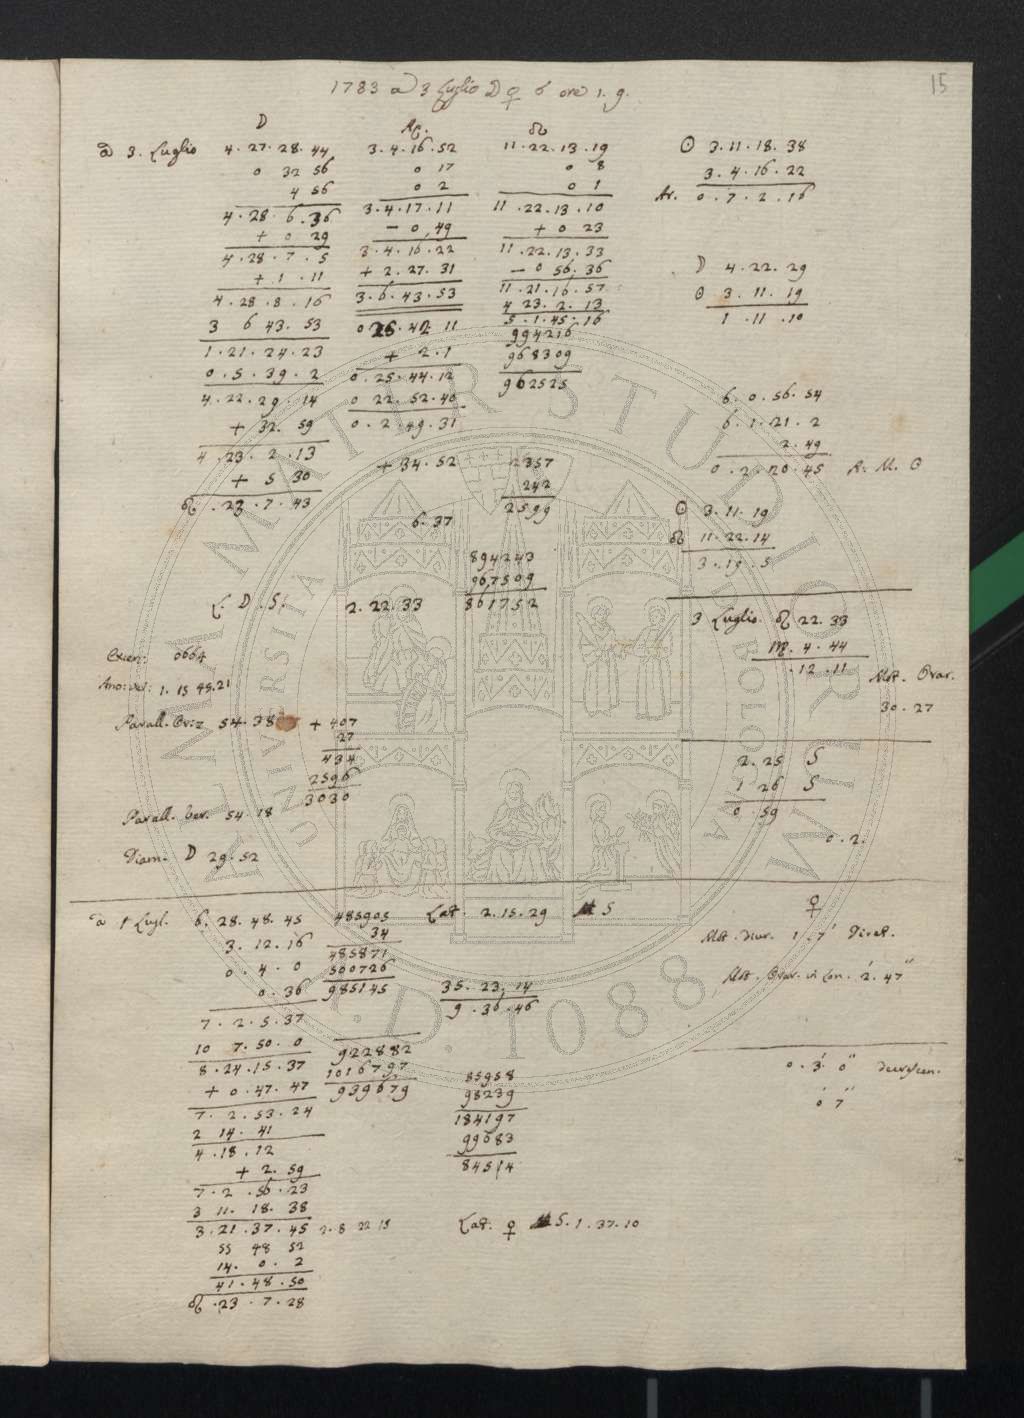 15
1783 a 3 Luglio ☽ ♀ 6 ore 1. 9.
☽
a 3. Luglio 4. 27. 28. 44
0 32 56
4 56
4. 28. 6. 36
+ 0 29
4. 28. 7. 5
+ 1. 11
4. 28. 8. 16
3 6 43. 53
1. 21. 24. 23
0. 5. 39. 2
4. 22. 29. 14
+ 32. 59
4. 23. 2. 13
+ 5 30
♌ . 23. 7. 43
3. 4. 16. 52
0 17
0 2
3. 4. 17. 11
- 0, 49
3. 4. 16. 22
+ 2. 27. 31
3. 6. 43. 53
0 26. 42 11
+ 2. 1
0. 25. 44. 12
0 22. 52. 40
0. 2. 49. 31
+ 34. 52
6. 37
☊
11. 22. 13. 19
0 8
0 1
11. 22. 13. 10
+ 0 23
11. 22. 13. 33
- 0 56. 36
11. 21. 16. 57
4 23. 2. 13
5. 1. 45. 16
994216
968309
962525
2357
242
2599
894243
967509
861752
☉ 3. 11. 18. 38
3. 4. 16. 22
Ar. 0. 7. 2. 16
☽ 4. 22. 29
☉ 3. 11. 19
1. 11. 10
6. 0. 56. 54
6. 1. 21. 2
2. 49
0. 2. 20. 45
☉ 3. 11. 19
☊ 11. 22. 14
3. 19. 5
L. ☽. S. 2. 22. 33
Excen: 0664
1. 15 45. 21
Parall. Oriz 54. 38
+ 407
27
434
2596
3030
Parall. 54. 18
Diam. ☽ 29. 52
3 Luglio ♌ 22. 33
♍. 4. 44
. 12. 11
Mot. Orar.
30. 27
2. 25 S
1 26 S
0. 59
0. 2.
a 1 Lugl. 6. 28. 48. 45
3. 12. 16
0. 4. 0
0. 36
7. 2. 5. 37
10 7. 50. 0
8. 24. 15. 37
+ 0. 47. 47
7. 2. 53. 24
2 14. 41
4. 18. 12
+ 2. 59
7. 2. 56. 23
3 11. 18. 38
3. 21. 37. 45 2. 8 22 15
55 48 52
14. 0. 2
41. 48. 50
♌ . 23. 7. 28
485905
34
485871
500726
985145
922882
1016797
939679
Lat. 2. 15. 29 S
35. 23. 14
9. 36. 46
85958
98239
184197
99683
84514
Lat. ♀ S. 1. 37. 10
♀
Mot. diur. 1. 7' Diret.
Mot. Orar. in Lon. 2'. 47"
0. 3' 0"
0' 7"
ALMA MATER STUDIORUM
UNIVERSITÀ DI BOLOGNA
A.D. 1088